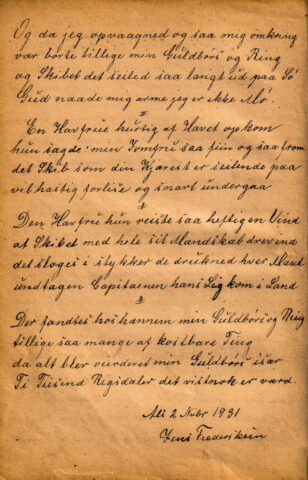 Og da jeg opvaagned og saa mig omkring
var borte tillige min Guldbörs og Ring
og Skibet det seiled saa langt ud paa Sö
Gud naade mig arme jeg er ikke Mö.
En Havfrue hurtig af Havet op kom
hun sagde: min Jomfru saa fiin og saa from
det Skib som din Kjærest er seilende paa
vil hastig forlise og snart undergaa
Den Havfru hun reiste saa heftigen Vind
at Skibet med hele sit Mandskab drev ind
det sloges i stykker de drukned hver Mand
undtagen Capitainen hans Lig kom i Land
Der fandtes hos hannem min Guldbörs og Ring
tillige saa mange af kostbare Ting
da alt blev vurderet min Guldbörs især
Ti Tusind Rigsdaler det vistnok er værd.
2 1931
Jens Frederiksen